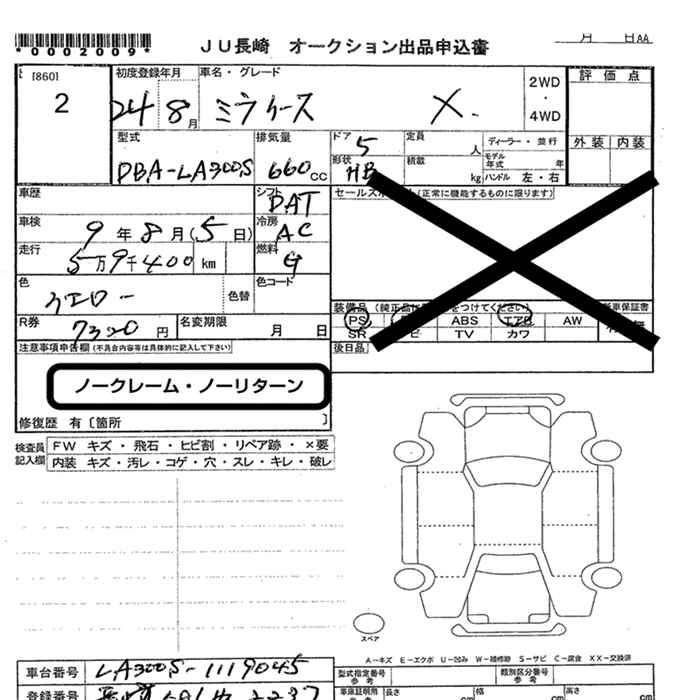 *0002009*
JU長崎 オークション出品申込書
月 日AA
[860]
2
初度登録年月
24 8月
車名・グレード
ミライース X.
2WD
・
4WD
評価点
外装 内装
型式
DBA-LA300S
排気量
660cc
ドア 5
形状 HB
定員 人
積載 kg
ディーラー・並行
モデル年式 年
ハンドル 左・右
車歴
シフト DAT
セールスポイント (正常に機能するものに限ります)
車検
9年8月(5日)
冷房 AC
走行
5万9千400 km
燃料 G
色
イエロー
色替
色コード
R券
7320円
名変期限 月 日
装備品 (純正品に をつけてください)
新車保証書
PS ABS エアB AW
SR TV カワ
注意事項申告欄(不具合内容等は具体的に記入して下さい)
後日品
ノークレーム・ノーリターン
修復歴 有〔箇所 〕
検査員記入欄
FW キズ・飛石・ヒビ割・リペア跡・×要
内装 キズ・汚レ・コゲ・穴・スレ・キレ・破レ
スペア
A-キズ E-エクボ U-凹み W-補修跡 S-サビ C-腐食 XX-交換済
車台番号 LA300S-1119045
型式指定番号 参考
類別区分番号 参考
登録番号
車庫証明用 参考
長さ 幅 高さ